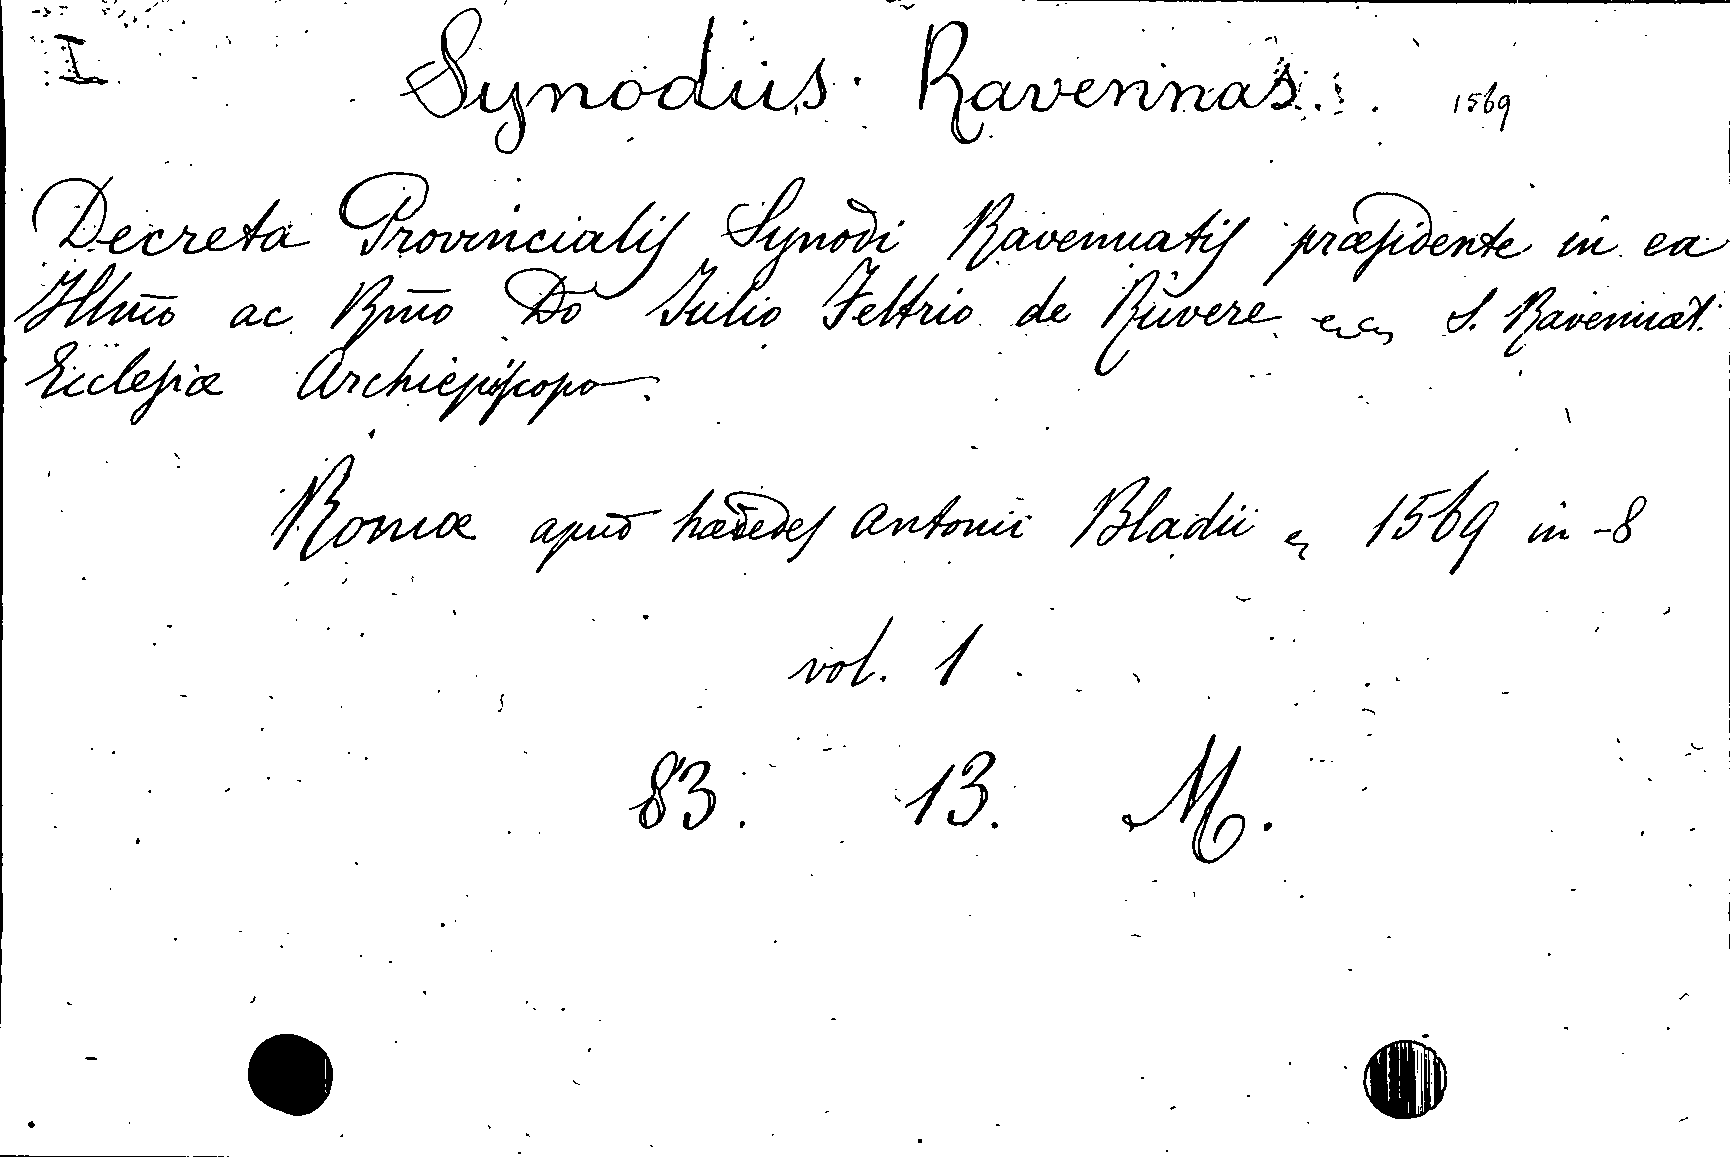 I
Synodus Ravennas. 1569
Decreta Provincialis Synodi Ravennatis præsidente in ea
Illm̄o ac Rm̄o Dō Julio Feltrio de Ruvere S. Ravennat.
Ecclesiæ Archiepiscopo.
Romæ apud hæredes Antonii Bladii 1569 in-8
vol. 1
83. 13. M.